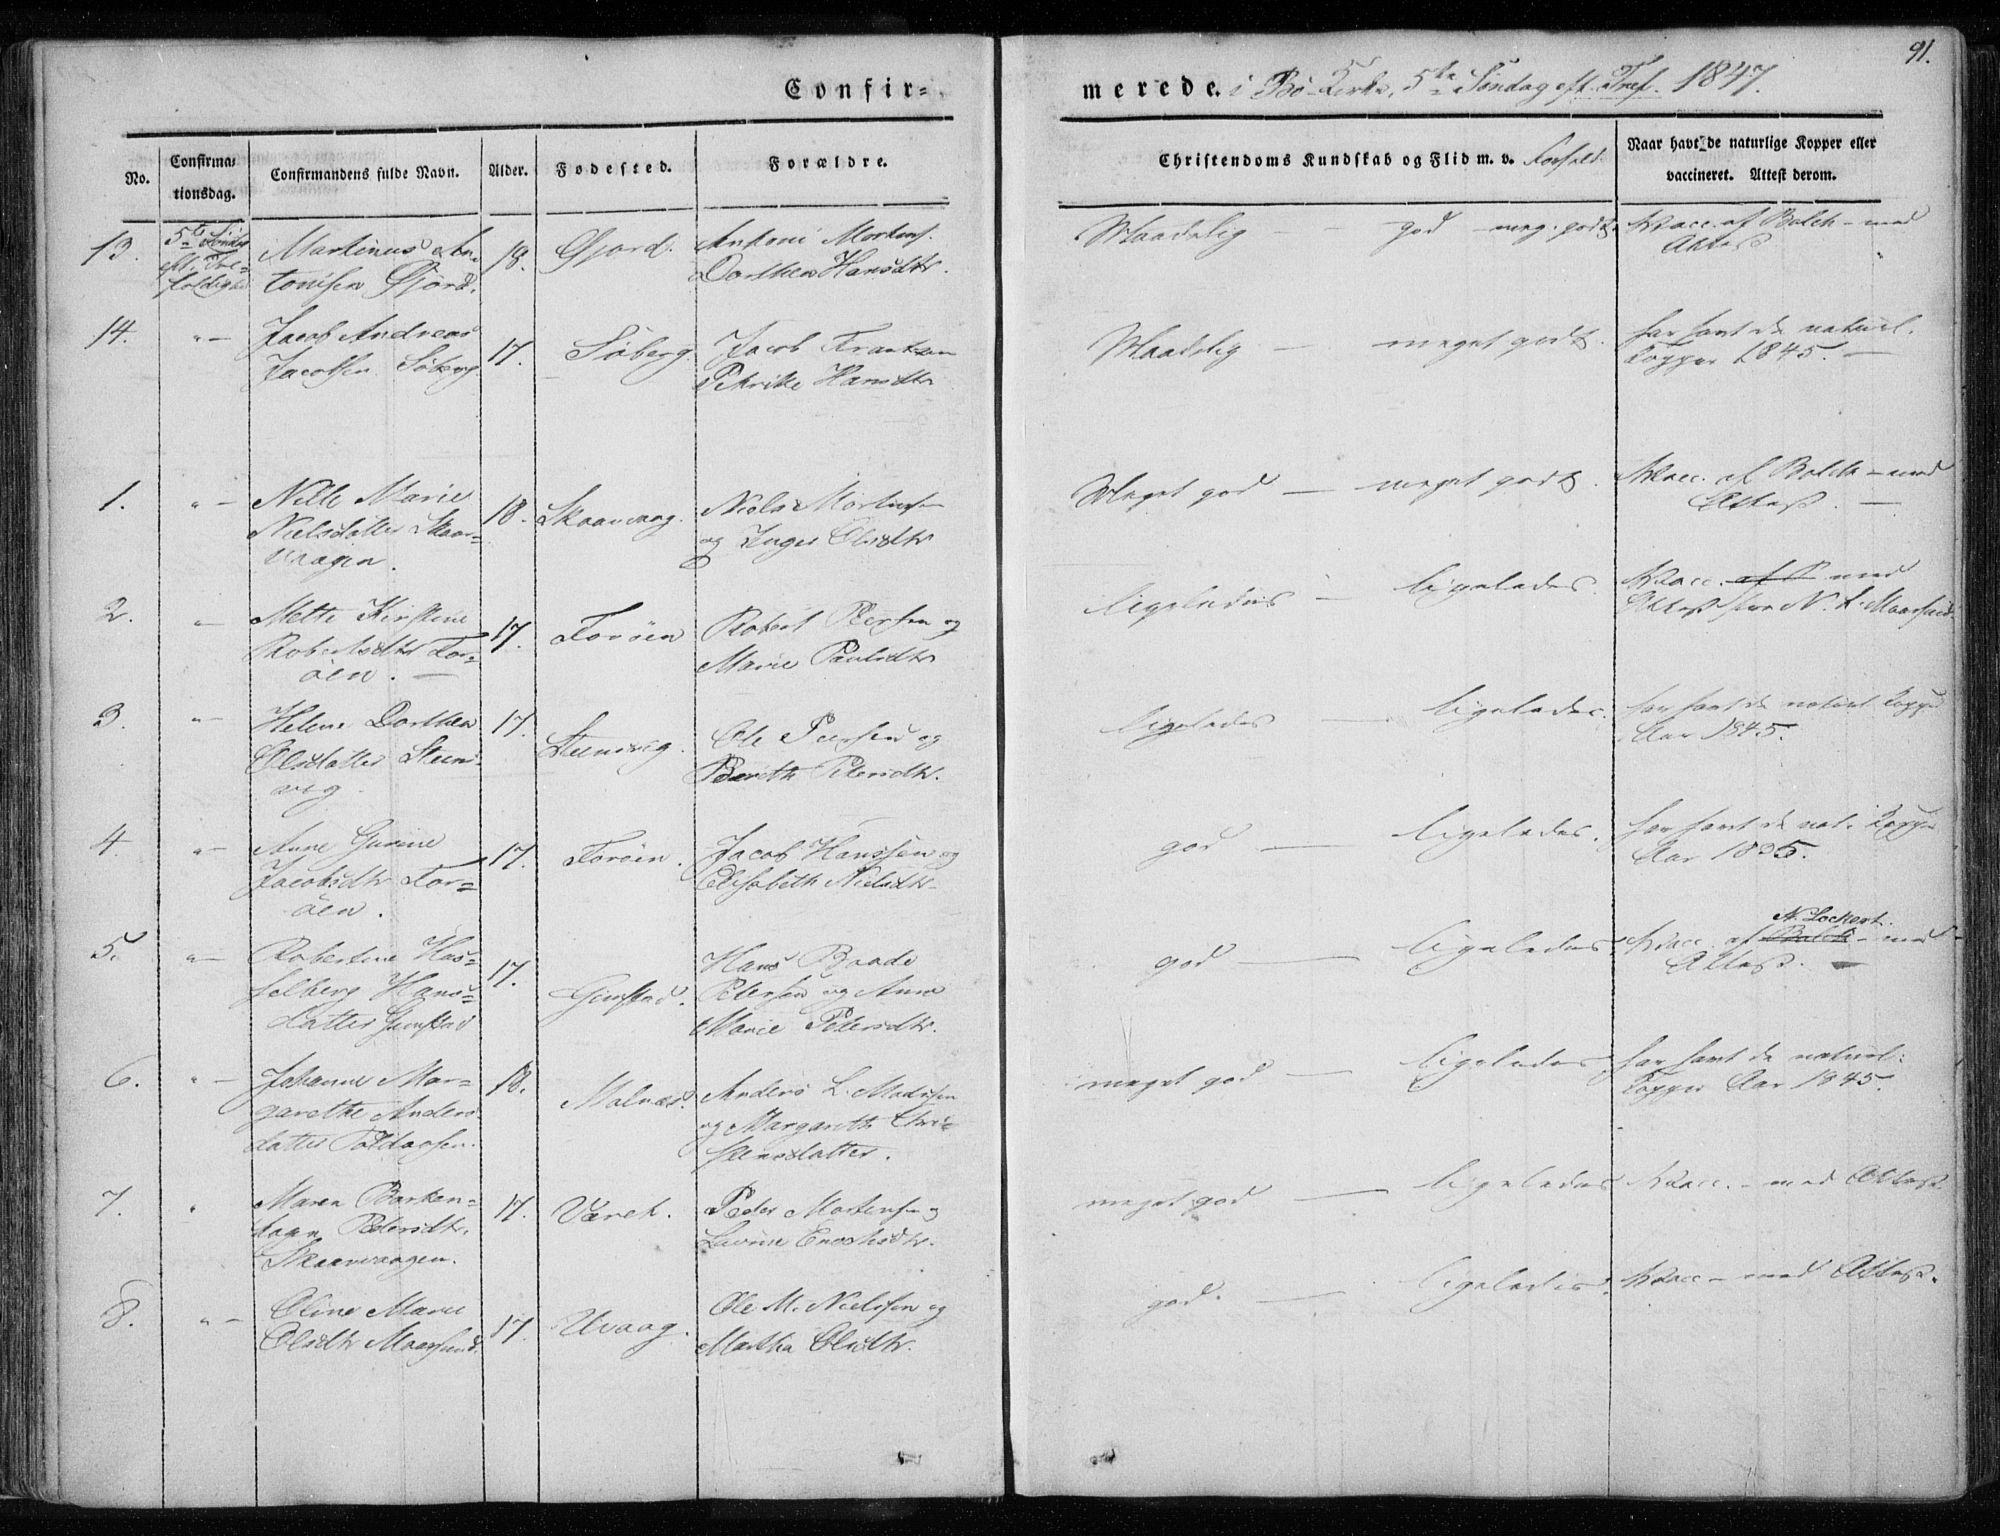 91.
Confir=
merede. i Bø Kirke, 5te Søndag eft. Tref. 1847.
No.
Confirma-
tionsdag.
Confirmandens fulde Navn.
Alder.
Fødested.
Forældre.
Christendoms Kundskab og Flid m. v. Forhold.
Naar havt de naturlige Kopper eller
vaccineret. Attest derom.
13.
5te Søndag
eft. Tre-
foldighed
Martinus An-
tonisen Øjord.
18.
Øjord.
Antoni Mortens.
Dorthea Hansdtr.
Maadelig - - god - meg. godt.
Vacc. af Balch - med
Attest
14.
" -
Jacob Andreas
Jacobsen Søberg
17.
Søberg
Jacob Frantsen
Petrike Hansdtr
Maadelig - meget godt.
har havt de naturl.
Kopper 1845. -
1.
" -
Nille Marie
Nielsdatter Skaar-
vaagen.
18.
Skaarvaag.
Niels Mortensen
og Inger Olsdtr
Meget god - meget godt.
Vacc. af Balch - med
Attest. -
2.
" -
Mette Kirstine
Robertsdtr For-
øen. -
17.
Forøen
Robert Peersen og
Marie Paulsdtr
ligeledes - ligeledes.
Vacc. af B med
Attest fra N. L. Maarsund
3.
" -
Helene Dorthea
Olsdatter Steen-
vig
17.
Steenvig.
Ole Peersen og
Bereth Petersdtr.
ligeledes - ligeledes.
har havt de naturl Kopper
Aar 1845.
4.
" -
Anne Gurine
Jacobsdtr For-
øen.
17.
Forøen.
Jacob Hanssen og
Elisabeth Nielsdtr.
god - ligeledes.
har havt de nat. Kopper
Aar 1835.
5.
" -
Robertine Has-
selberg Hans-
datter Gimstad
17.
Gimstad.
Hans Baade
Petersen og Anne
Marie Petersdtr.
god - ligeledes.
N. Lockert.
Vacc. af Balch - med
Attest. -
6.
" -
Johanne Mar-
garethe Anders-
datter
18.
Malnes.
Anders L. Madssen
og Margareth Chri-
stensdatter.
meget god - ligeledes
har havt de naturl.
Kopper Aar 1845.
7.
"
Maren Barken-
hagen Pedersdtr.
Skaarvaagen.
17.
Været.
Peder Mortensen og
Lavine Enochsdtr.
meget god - ligeledes
Vacc. - med Attest
8.
" -
Oline Marie
Olsdtr Maarsund.
17.
Uvaag.
Ole M. Nielssen og
Martha Olsdtr.
god. - ligeledes.
Vacc - med Attest.